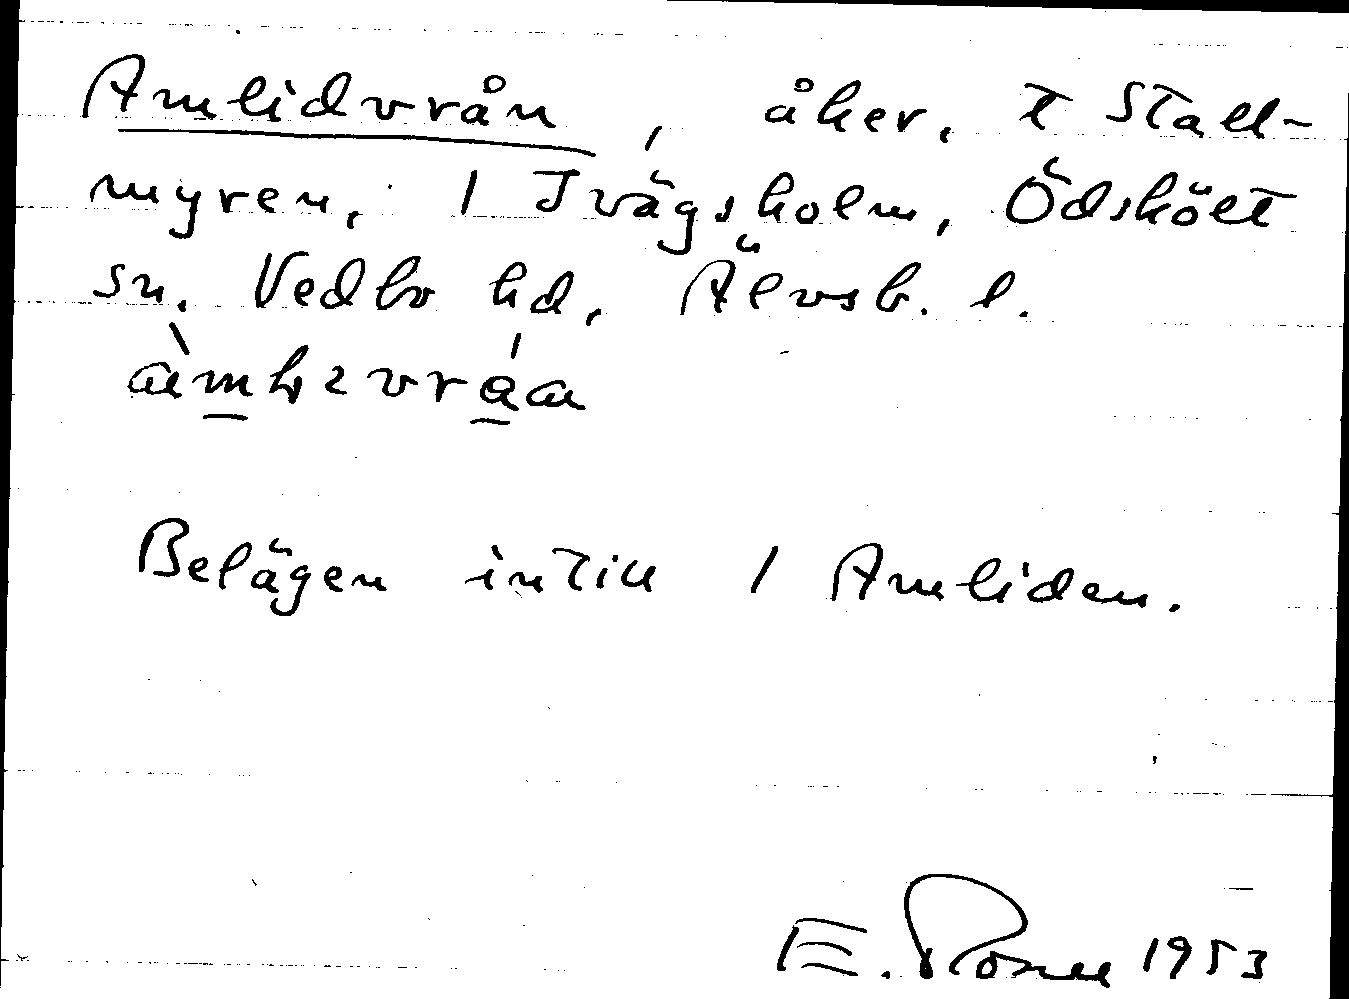 Amlidvrån, åker, t Stall-
myren, 1 Ivägsholm, Ödskölt
sn. Vedbo hd, Älvsb. l.
Belägen intill 1 Amliden.
E. 1953